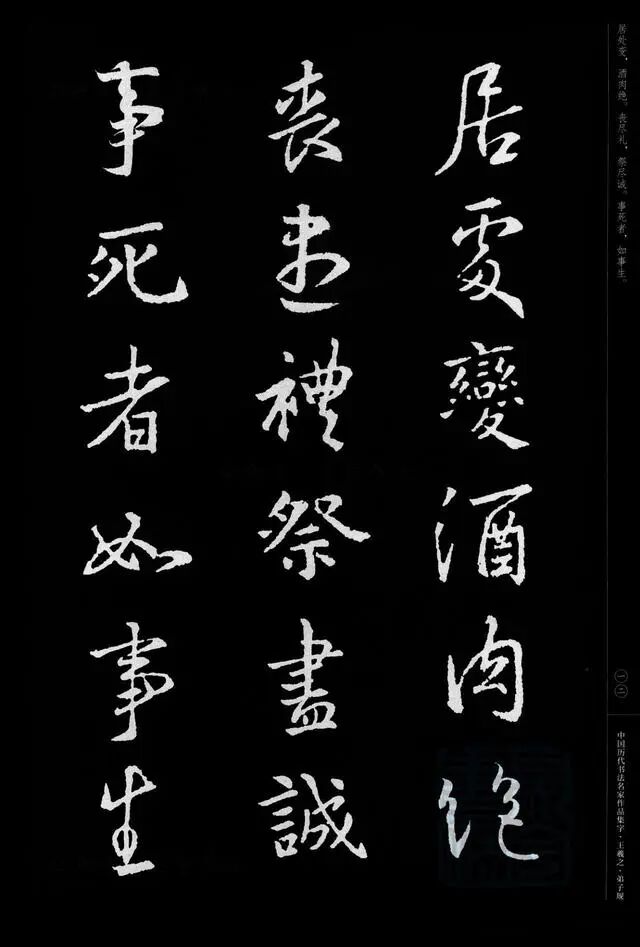 居處變酒肉絕
喪盡禮祭盡誠
事死者如事生
居处变，酒肉绝。丧尽礼，祭尽诚。事死者，如事生。
一二
中国历代书法名家作品集字·王羲之·弟子规